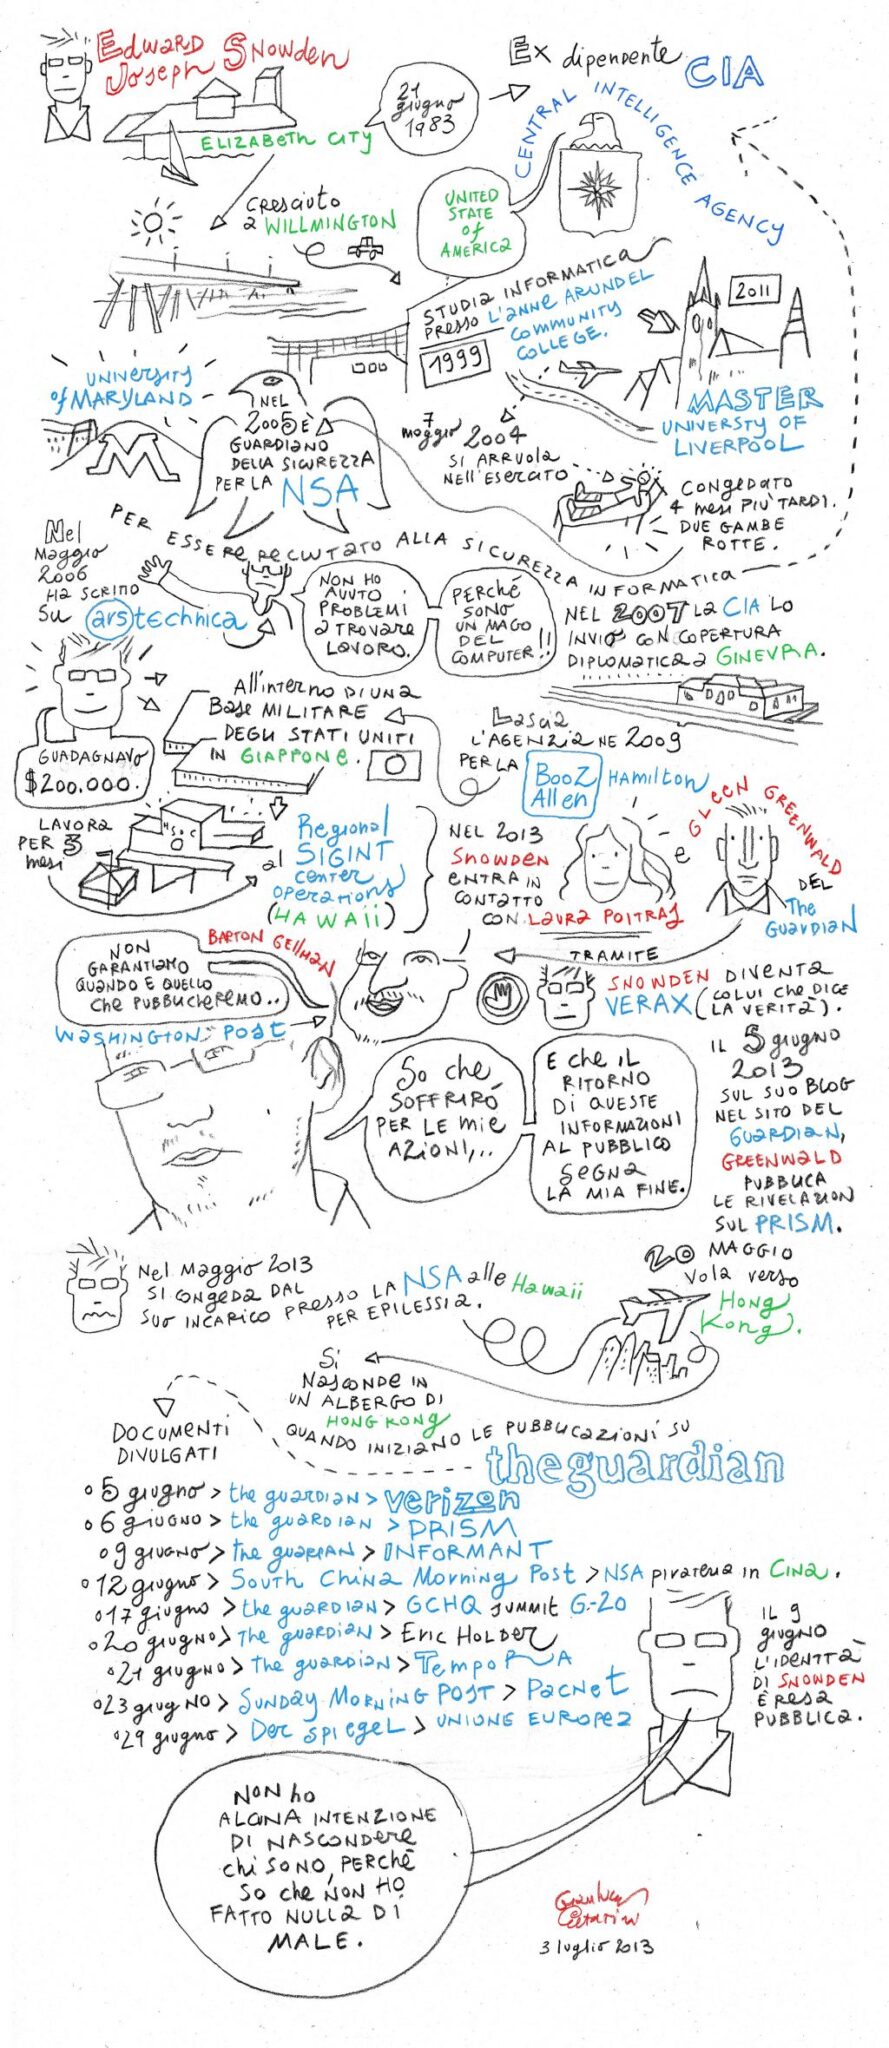 EDWARD
JOSEPH SNOWDEN
ELIZABETH CITY
21
giugno
1983
Ex dipendente CIA
CENTRAL INTELLIGENCE AGENCY
UNITED
STATE
of
AMERICA
cresciuto
a WILLMINGTON
STUDIA INFORMATICA
PRESSO L'ANNE ARUNDEL
COMMUNITY
COLLEGE.
1999
2011
MASTER
UNIVERSTY OF
LIVERPOOL
UNIVERSITY
of MARYLAND
NEL
2005 È
GUARDIANO
DELLA SICUREZZA
PER LA NSA
7
maggio 2004
SI ARRUOLA
NELL'ESERCITO
CONGEDATO
4 MESI PIÙ TARDI.
DUE GAMBE
ROTTE.
PER ESSERE RECLUTATO ALLA SICUREZZA INFORMATICA
Nel
Maggio
2006
HA SCRITTO
SU arstechnica
NON HO
AVUTO
PROBLEMI
A TROVARE
LAVORO.
PERCHÉ
SONO
UN MAGO
DEL
COMPUTER!!
NEL 2007 LA CIA LO
INVIÒ CON COPERTURA
DIPLOMATICA A GINEVRA.
GUADAGNAVO
$200.000.
All'INTERNO DI UNA
BASE MILITARE
DEGLI STATI UNITI
IN GIAPPONE.
LASCIA
L'AGENZIA NE 2009
PER LA BOOZ HAMILTON
Allen
LAVORA
PER 3
mesi
al Regional
SIGINT
center
operations
(HAWAII)
NEL 2013
SNOWDEN
ENTRA IN
CONTATTO
CON LAURA POITRAS
e GLEEN GREENWALD
DEL
The
GUARDIAN
TRAMITE
NON
GARANTIAMO
QUANDO E QUELLO
che PUBBLICHEREMO..
BARTON GELLMAN
WASHINGTON POST
SNOWDEN DIVENTA
VERAX (COLUI CHE DICE
LA VERITÀ).
So che
SOFFRIRÒ
PER LE MIE
AZIONI,..
E che IL
RITORNO
DI QUESTE
INFORMAZIONI
AL PUBBLICO
SEGNA
LA MIA FINE.
IL 5 giugno
2013
SUL SUO BLOG
NEL SITO DEL
GUARDIAN,
GREENWALD
PUBBLICA
LE RIVELAZIONI
SUL PRISM.
Nel Maggio 2013
SI CONGEDA DAL
SUO INCARICO PRESSO LA NSA alle Hawaii
PER EPILESSIA.
20 MAGGIO
Vola verso
HONG
KONG.
Si
NASCONDE IN
UN ALBERGO DI
HONG KONG
QUANDO INIZIANO LE PUBBLICAZIONI SU
theguardian
DOCUMENTI
DIVULGATI
° 5 giugno > the guardian > verizon
° 6 GIUGNO > the guardian > PRISM
° 9 giugno > the guardian > INFORMANT
° 12 giugno > South China Morning Post > NSA pirateria in CINA.
° 17 giugno > the guardian > GCHQ summit G-20
° 20 giugno > The guardian > Eric HOLDER
° 21 giugno > the guardian > Tempora
° 23 giugno > SUNDAY MORNING POST > Pacnet
° 29 giugno > Der spiegel > UNIONE EUROPEA
IL 9
giugno
L'IDENTITÀ
DI SNOWDEN
È RESA
PUBBLICA.
NON ho
ALCUNA INTENZIONE
DI NASCONDERE
chi SONO, PERCHÉ
SO che NON HO
FATTO NULLA DI
MALE.
3 luglio 2013